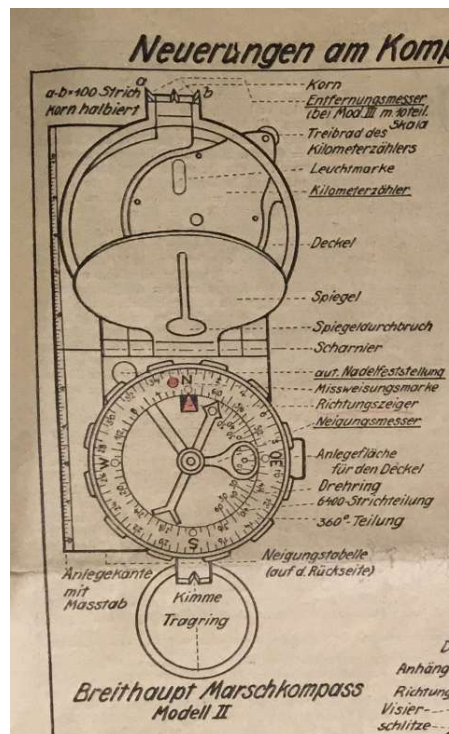 Neuerungen am Komp
a-b=100 Strich
Korn halbiert
a
b
Korn
Entfernungsmesser
(bei Mod. III m. 10teil.
Skala
Treibrad des
Kilometerzählers
Leuchtmarke
Kilometerzähler
Deckel
Spiegel
Spiegeldurchbruch
Scharnier
aut. Nadelfeststellung
Missweisungsmarke
Richtungszeiger
Neigungsmesser
Anlegefläche
für den Deckel
Drehring
6400-Strichteilung
360°-Teilung
N
W
OE
S
Neigungstabelle
(auf d. Rückseite)
Anlegekante
mit
Masstab
Kimme
Tragring
Breithaupt Marschkompass
Modell II
D
Anhäng
Richtung
Visier-
schlitze-